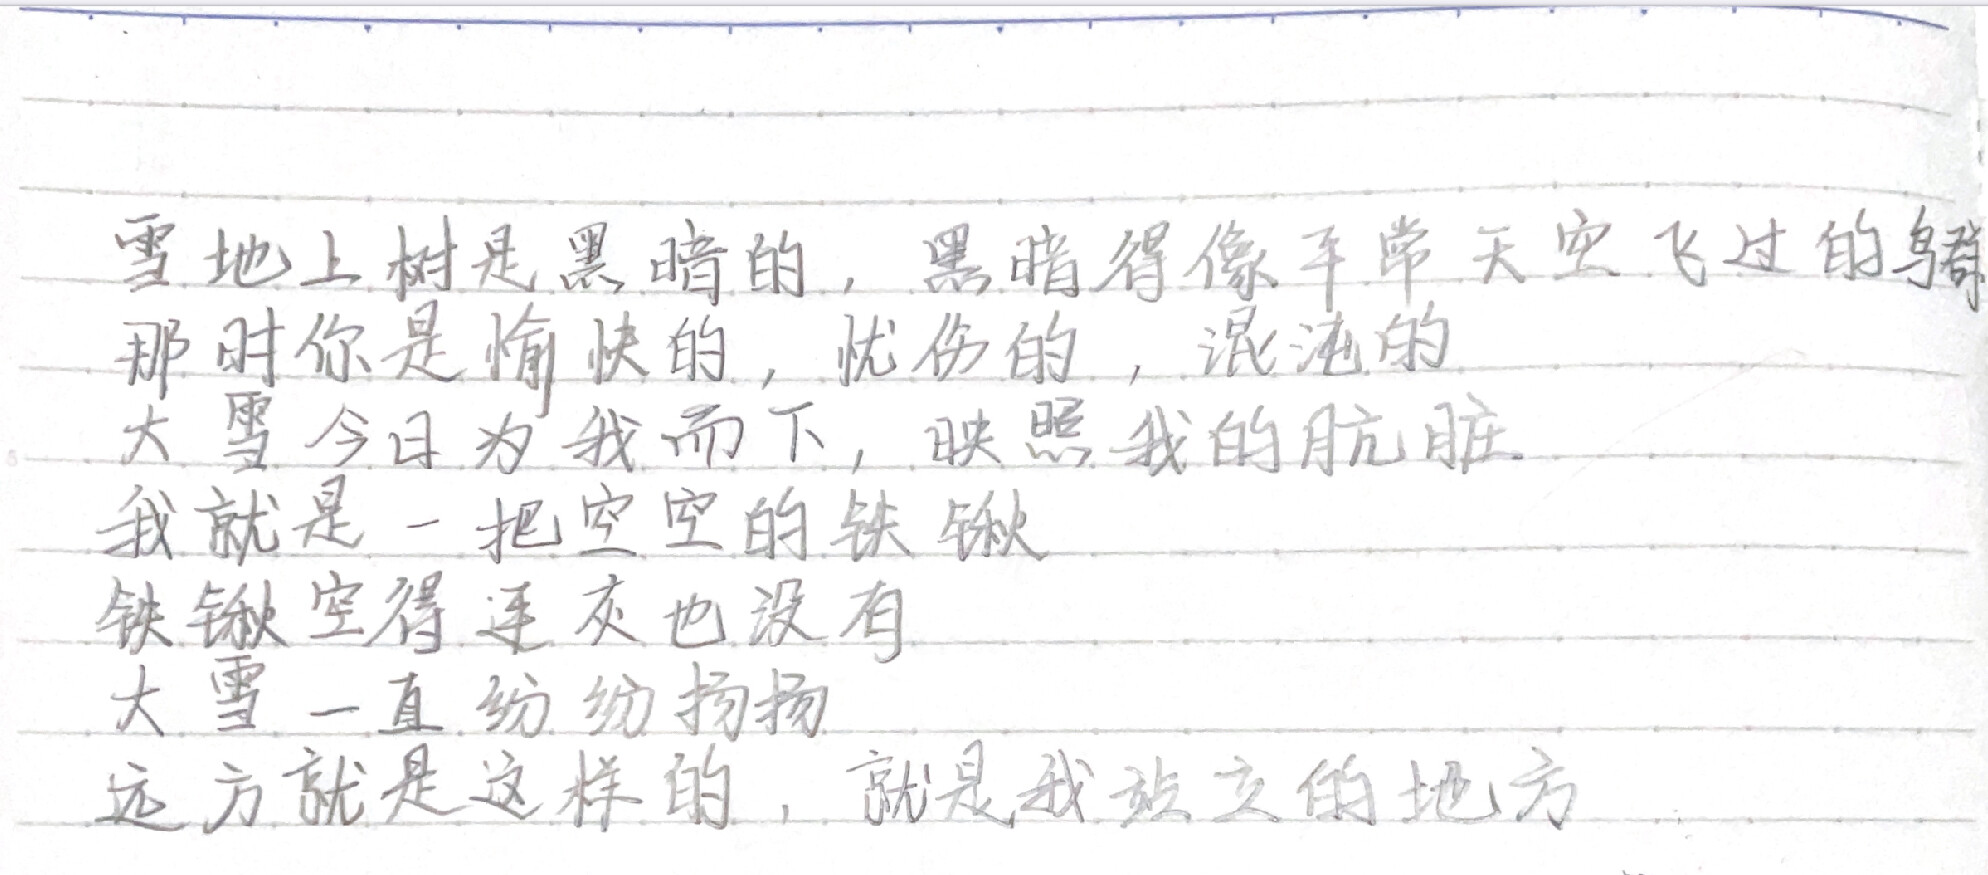 雪地上树是黑暗的，黑暗得像平常天空飞过的鸟群
那时你是愉快的，忧伤的，混沌的
大雪今日为我而下，映照我的肮脏
我就是一把空空的铁锹
铁锹空得连灰也没有
大雪一直纷纷扬扬
远方就是这样的，就是我站立的地方